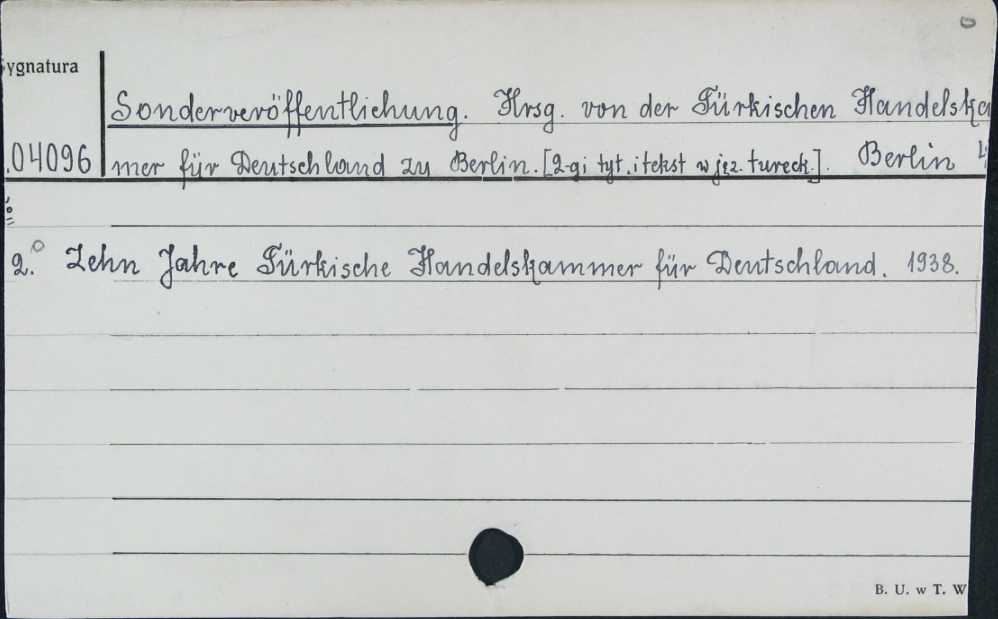 ygnatura
Sonderveröffentlichung. Hrsg. von der Türkischen Handelska
.04096 mer für Deutschland zu Berlin. [2-gi tyt. i tekst w jęz. tureck.]. Berlin
2.° Zehn Jahre Türkische Handelskammer für Deutschland. 1938.
B. U. w T. W